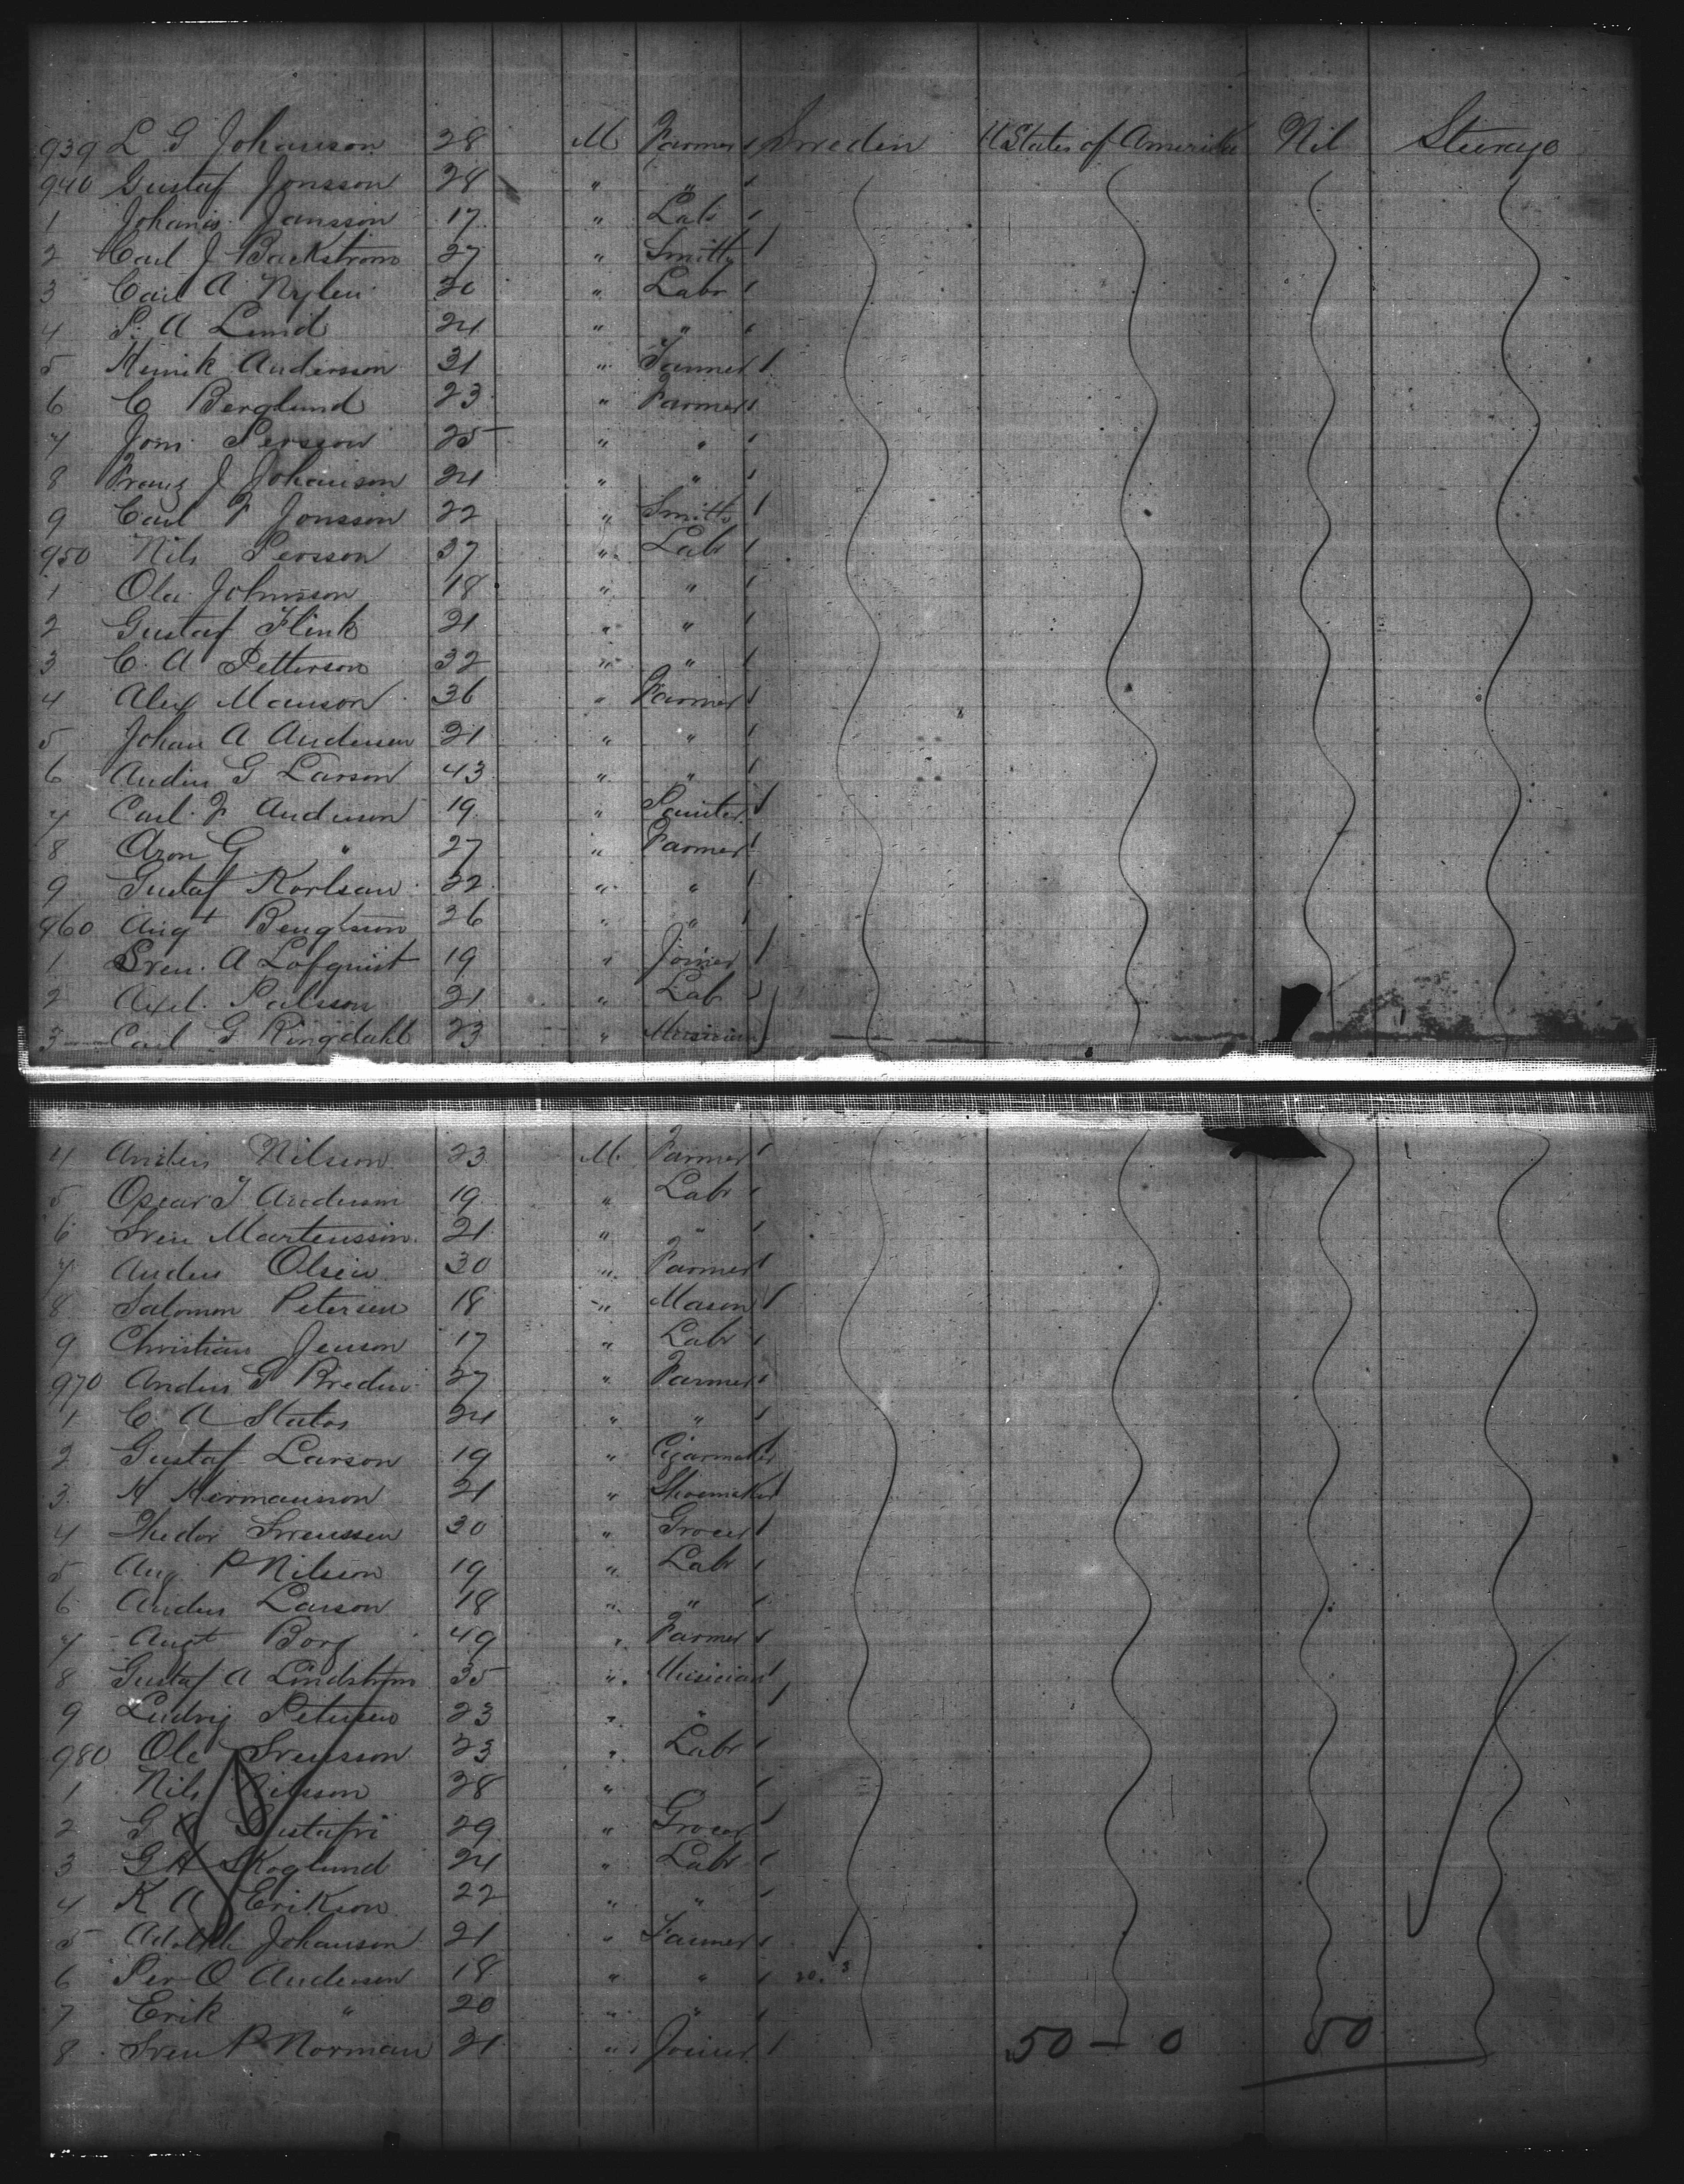 939 L G Johansson 28 M Farmer Sweden U States of America Nil Sterage
940 Gustaf Jonsson 28 " "
1 Johanis Jansson 17 " Lab
2 Carl J Backstrom 27 " Smith
3 Carl A Nylen 30 " Labr
4 P. A Lund 24 " "
5 Henrik Andersson 31 " Farmer
6 C Berglund 23 " Farmer
7 Jom Persson 25 " "
8 Franz J Johanson 24 " "
9 Carl F Jonsson 22 " Smith
950 Nils Persson 37 " Labr
1 Ola Johnsson 18 " "
2 Gustaf Flink 21 " "
3 C. A Petterson 32 " "
4 Alex Manson 36 " Farmer
5 Johan A Andersen 21 " "
6 Anders G Larson 43 " "
7 Carl F Anderson 19 " Painter
8 Aron G " 27 " Farmer
9 Gustaf Karlsan 22 " "
960 Augt Bengtson 26 " "
1 Sven A Lofquist 19 " Joiner
2 Axel Palsson 21 " Lab
3 Carl G Ringdahl 23 " Musician
4 Anders Nilsson 23 M Farmer
5 Oscar F Anderson 19 " Labr
6 Sven Martensson 21 " "
7 Anders Olsen 30 " Farmer
8 Salomon Petersen 18 " Mason
9 Christian Jenson 17 " Labr
970 Anders G Bredin 27 " Farmer
1 C. A 24 " "
2 Gustaf Larson 19 " Cigarmaker
3 H Hermansson 21 " Shoemaker
4 Thedor Svenssen 30 " Grocer
5 Aug P Nilsson 19 " Labr
6 Anders Larson 18 " "
7 Augt Borg 49 " Farmer
8 Gustaf A Lindstrom 35 " Musician
9 Ludvig Petersen 23 " "
980 Ole Svensson 23 " Labr
1 Nils Nilsson 28 "
2 G Gustafri 29 " Grocer
3 G A Skoglund 24 " Labr
4 K A Erikson 22 " "
5 Adolph Johanson 21 " Farmer
6 Per O Andersen 18 " "
7 Erik " 20 " "
8 Sven P Norman 21 " Joiner 50 - 0 50